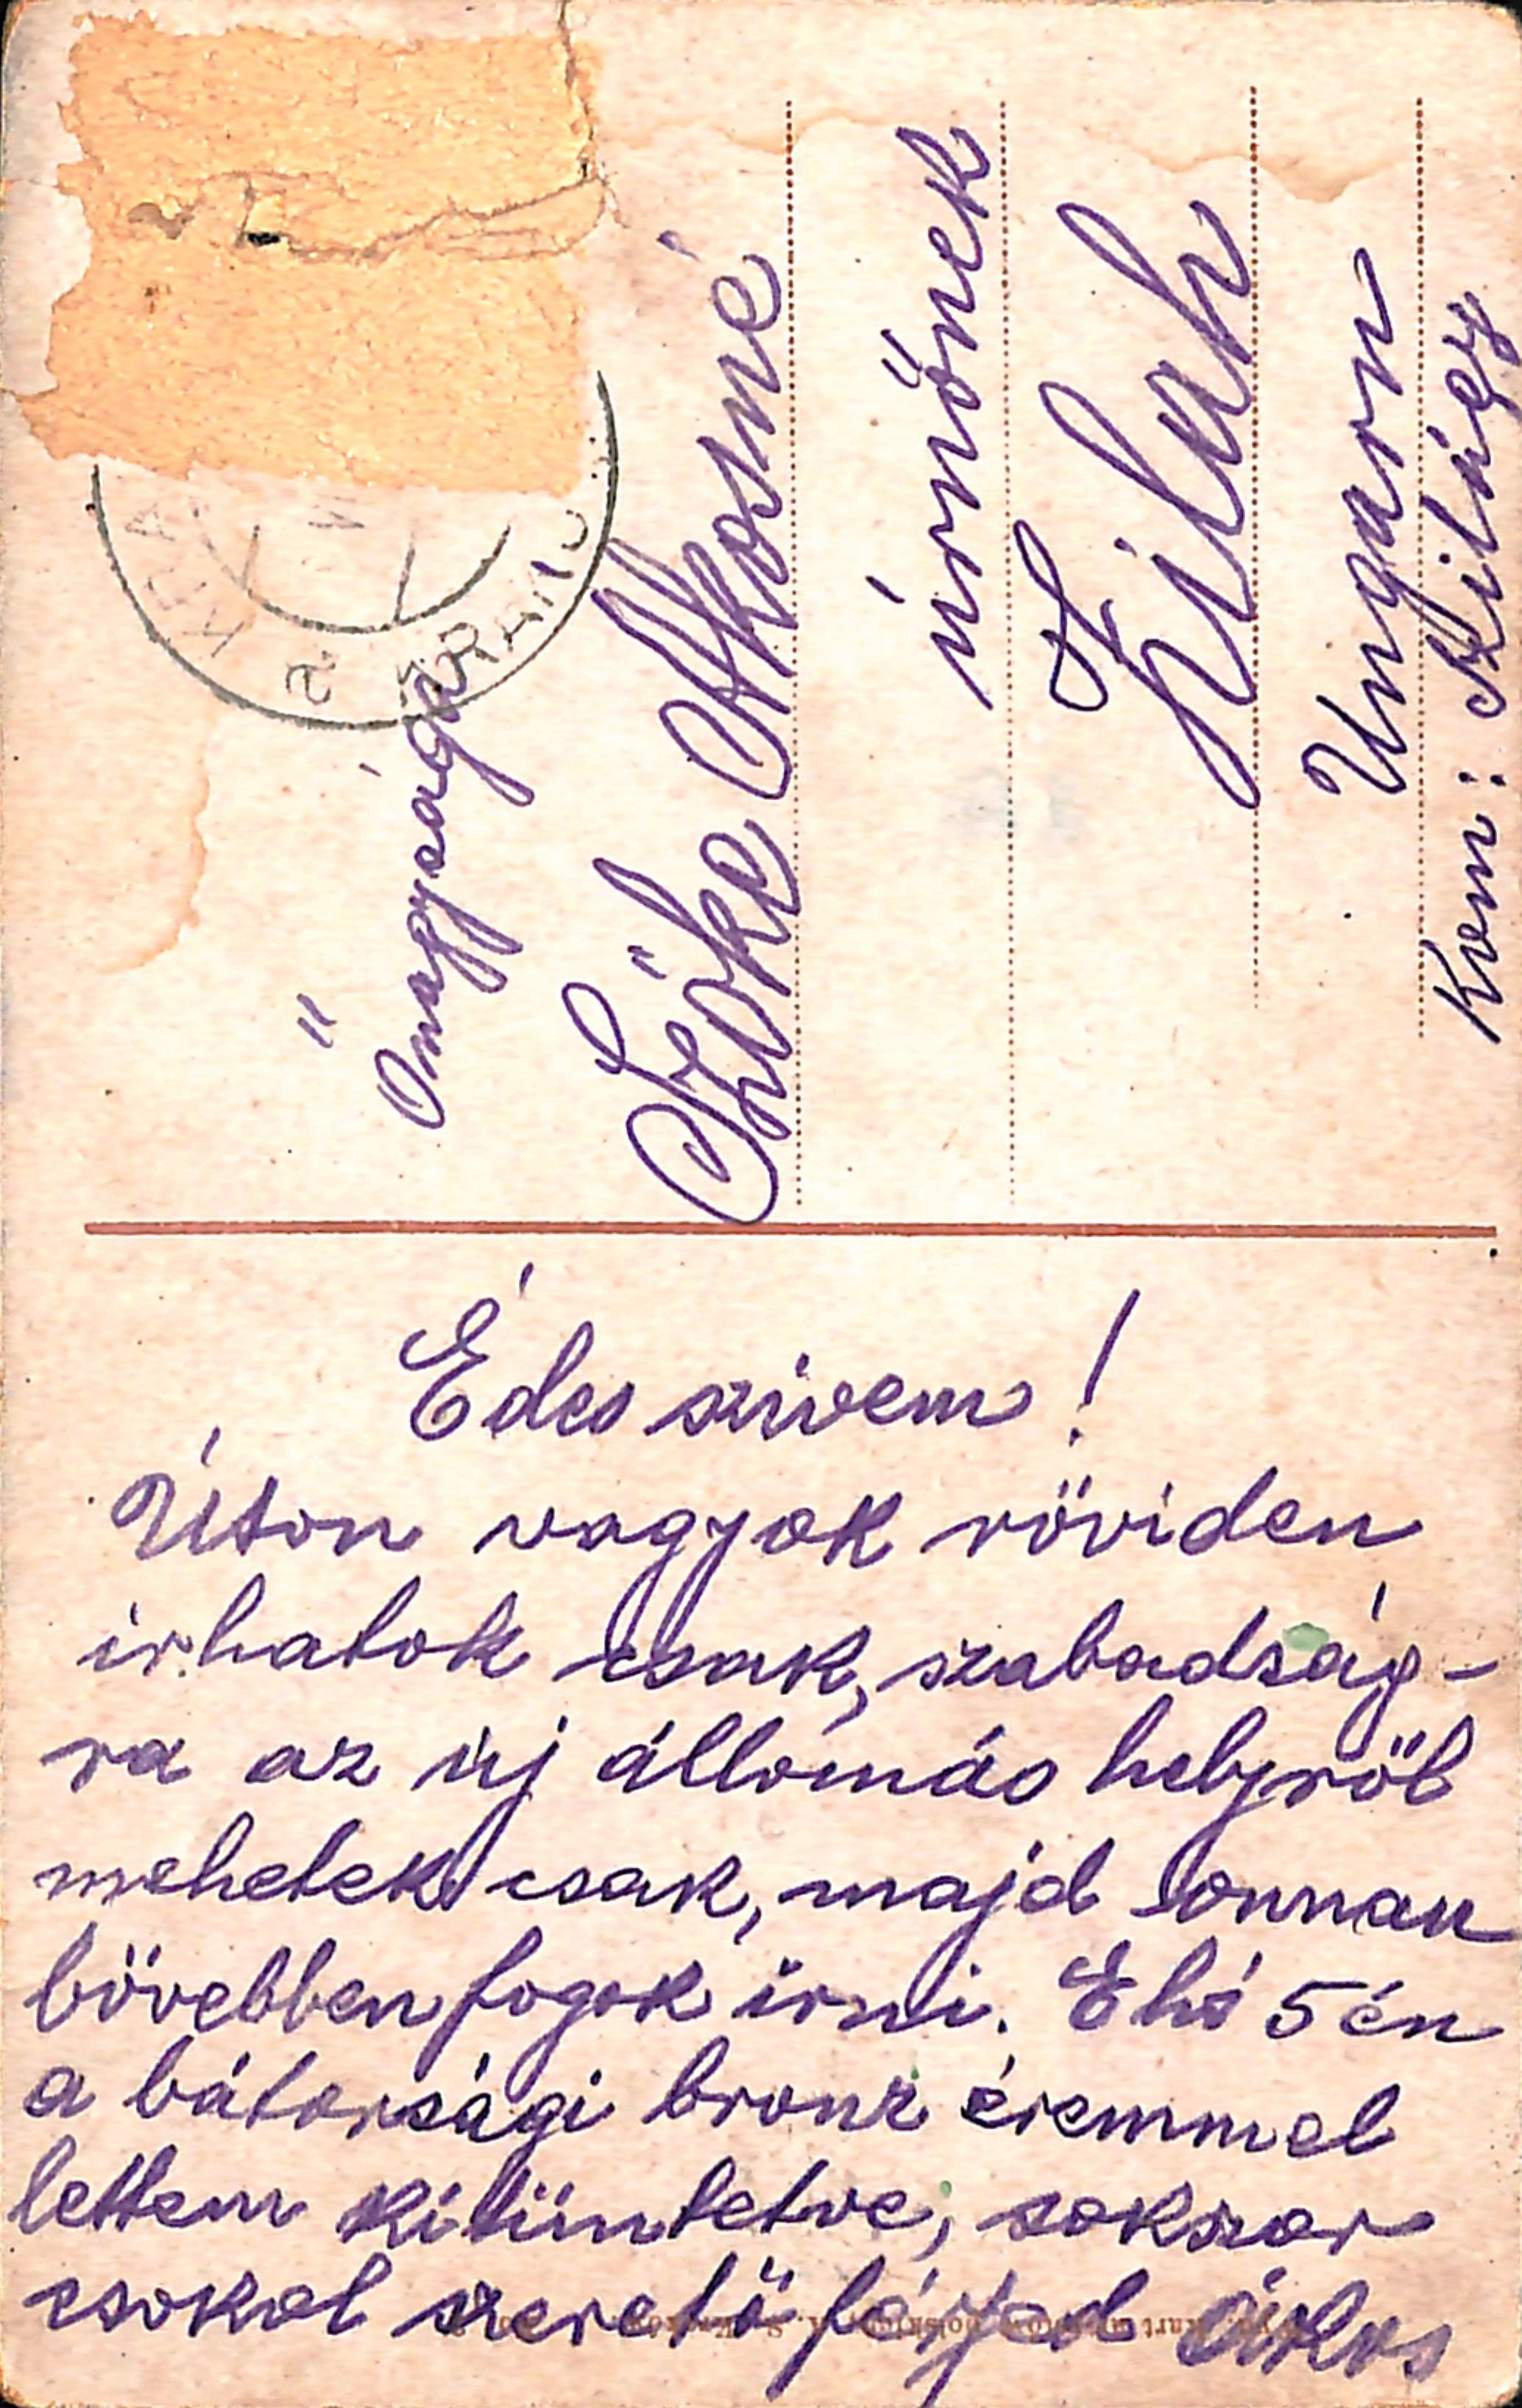 Őnagysága
Szőke Ákosné
úrnőnek
Zilah
Ungarn
Kom: Szilágy
Édes szivem!
Úton vagyok röviden
irhatok csak, szabadság-
ra az új állomás helyről
mehetek csak, majd onnan
bövebben fogok irni. E hó 5 én
a bátorsági bronz éremmel
lettem kitüntetve, sokszor
csokol szerető férjed Ákos